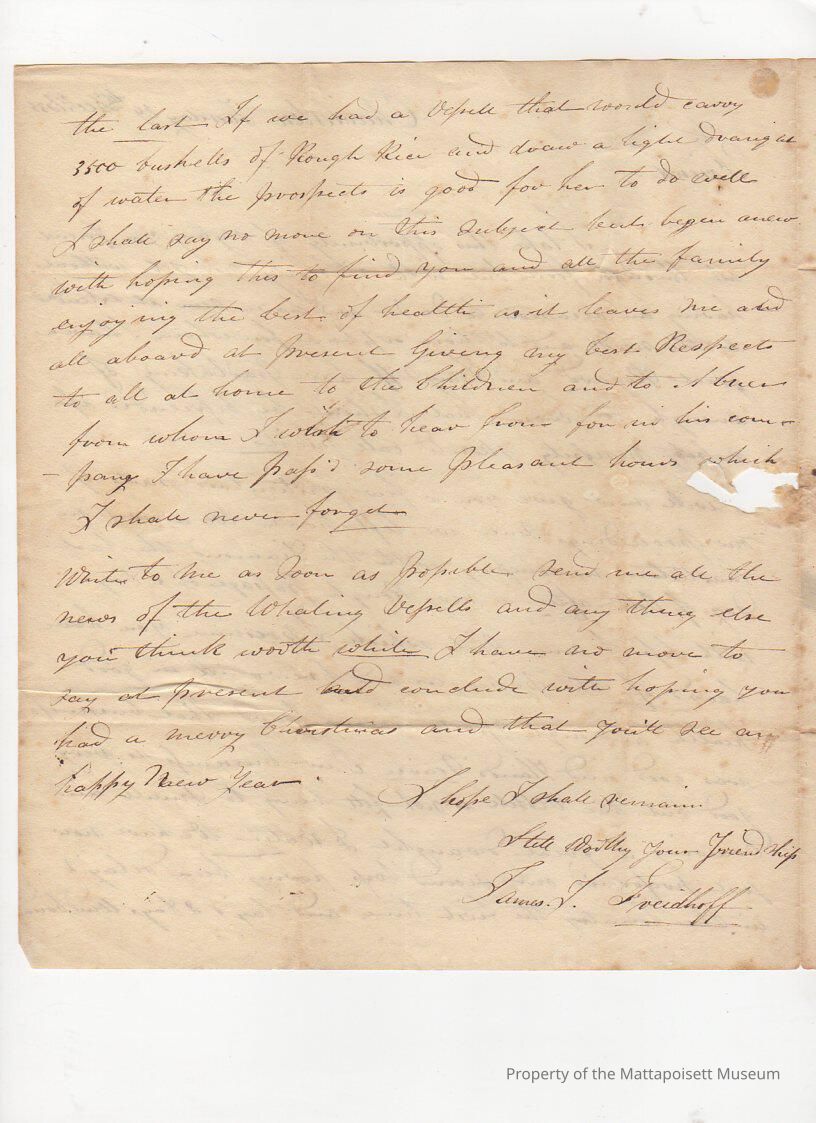 the last If we had a Vessell that would carry
3500 bushells of Rough Rice and draw a light draught
of water the prospects is good for her to do well
I shall say no more on this subject but begin anew
with hoping this to find you and all the family
enjoying the best of health as it leaves me and
all aboard at present Giving my best Respects
to all at home to the Children and to Abner
from whom I wish to hear from for in his com-
-pany I have pass'd some pleasant hours which
I shall never forget
Write to me as soon as possible send me all the
news of the Whaling Vessells and any thing else
you think worth while I have no more to
say at present and conclude with hoping you
had a merry Christmas and that you'll see an
happy New Year
I hope I shall remain
Still Worthy your Friendship
James. T. Freidhoff
Property of the Mattapoisett Museum